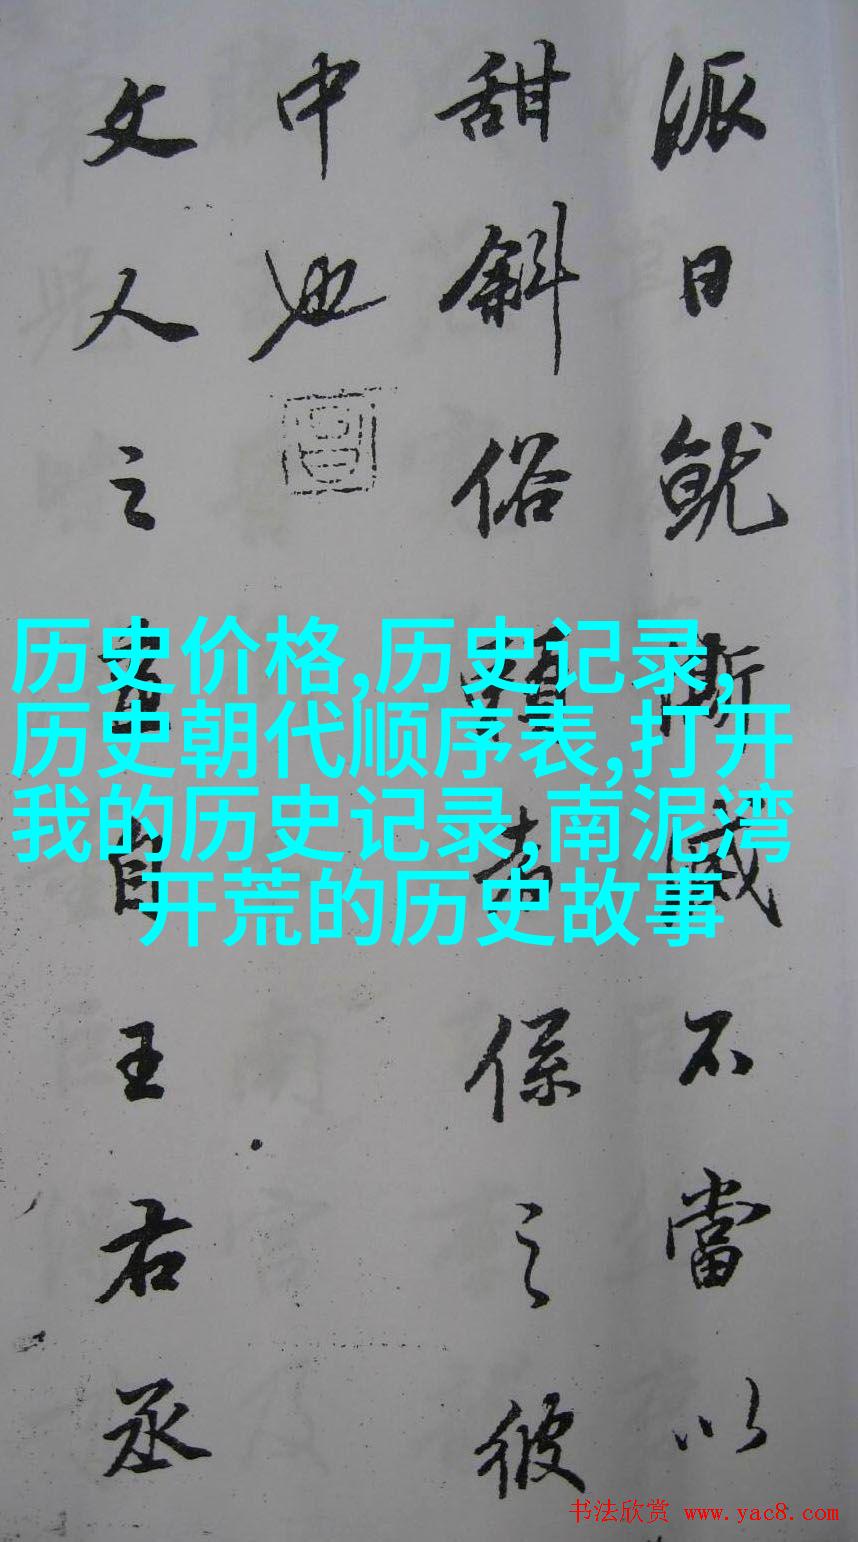 派日就漸滅不當以
甜斜俗賴者係之彼
中也
文人之畫自王右丞
历史价格,历史记录,
历史朝代顺序表,打开
我的历史记录,南泥湾
开荒的历史故事
书法欣赏 www.yac8.com